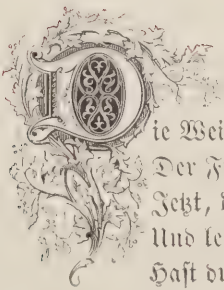 Die Wei
Der F
Jetzt,
Und le
Hast du